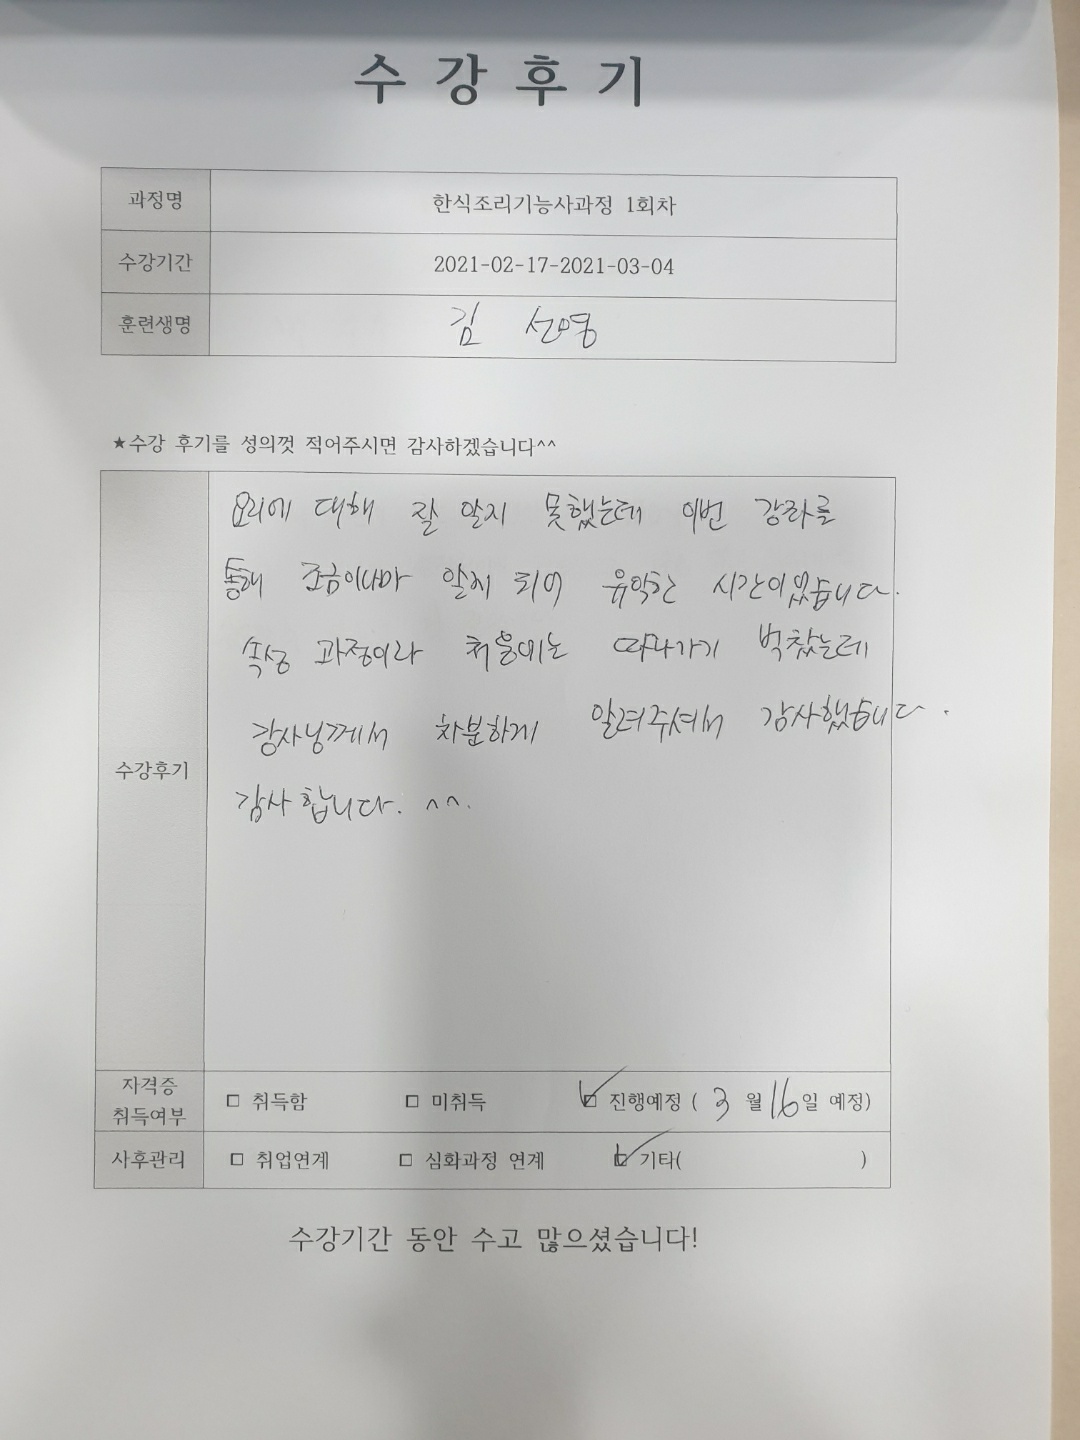 수강후기
과정명 한식조리기능사과정 1회차
수강기간 2021-02-17-2021-03-04
훈련생명 김 선영
★수강 후기를 성의껏 적어주시면 감사하겠습니다^^
요리에 대해 잘 알지 못했는데 이번 강좌를
통해 조금이나마 알게 되어 유익한 시간이었습니다.
속성 과정이라 처음에는 따라가기 벅찼는데
강사님께서 차분하게 알려주셔서 감사했습니다.
수강후기
감사합니다. ^^.
자격증 취득여부 □ 취득함 □ 미취득 ☑ 진행예정 ( 3 월 16일 예정)
사후관리 □ 취업연계 □ 심화과정 연계 ☑ 기타( )
수강기간 동안 수고 많으셨습니다!